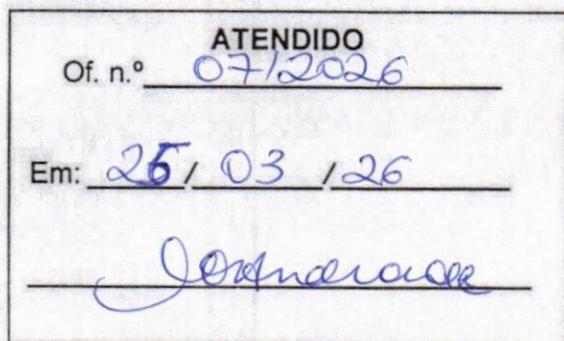 ATENDIDO
Of. n.º 07/2026
Em: 25 / 03 / 26